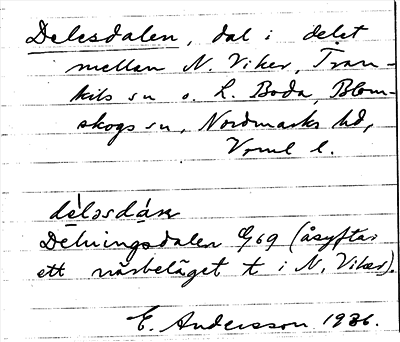 Delesdalen, dal i delet
mellan N. Viker, Tran-
kils sn o. L. Boda, Blom-
skogs sn, Nordmarks hd,
Vrml l.
Delningsdalen 9/69 (åsyftar
ett närbeläget t i N. Viker).
E. Andersson 1936.